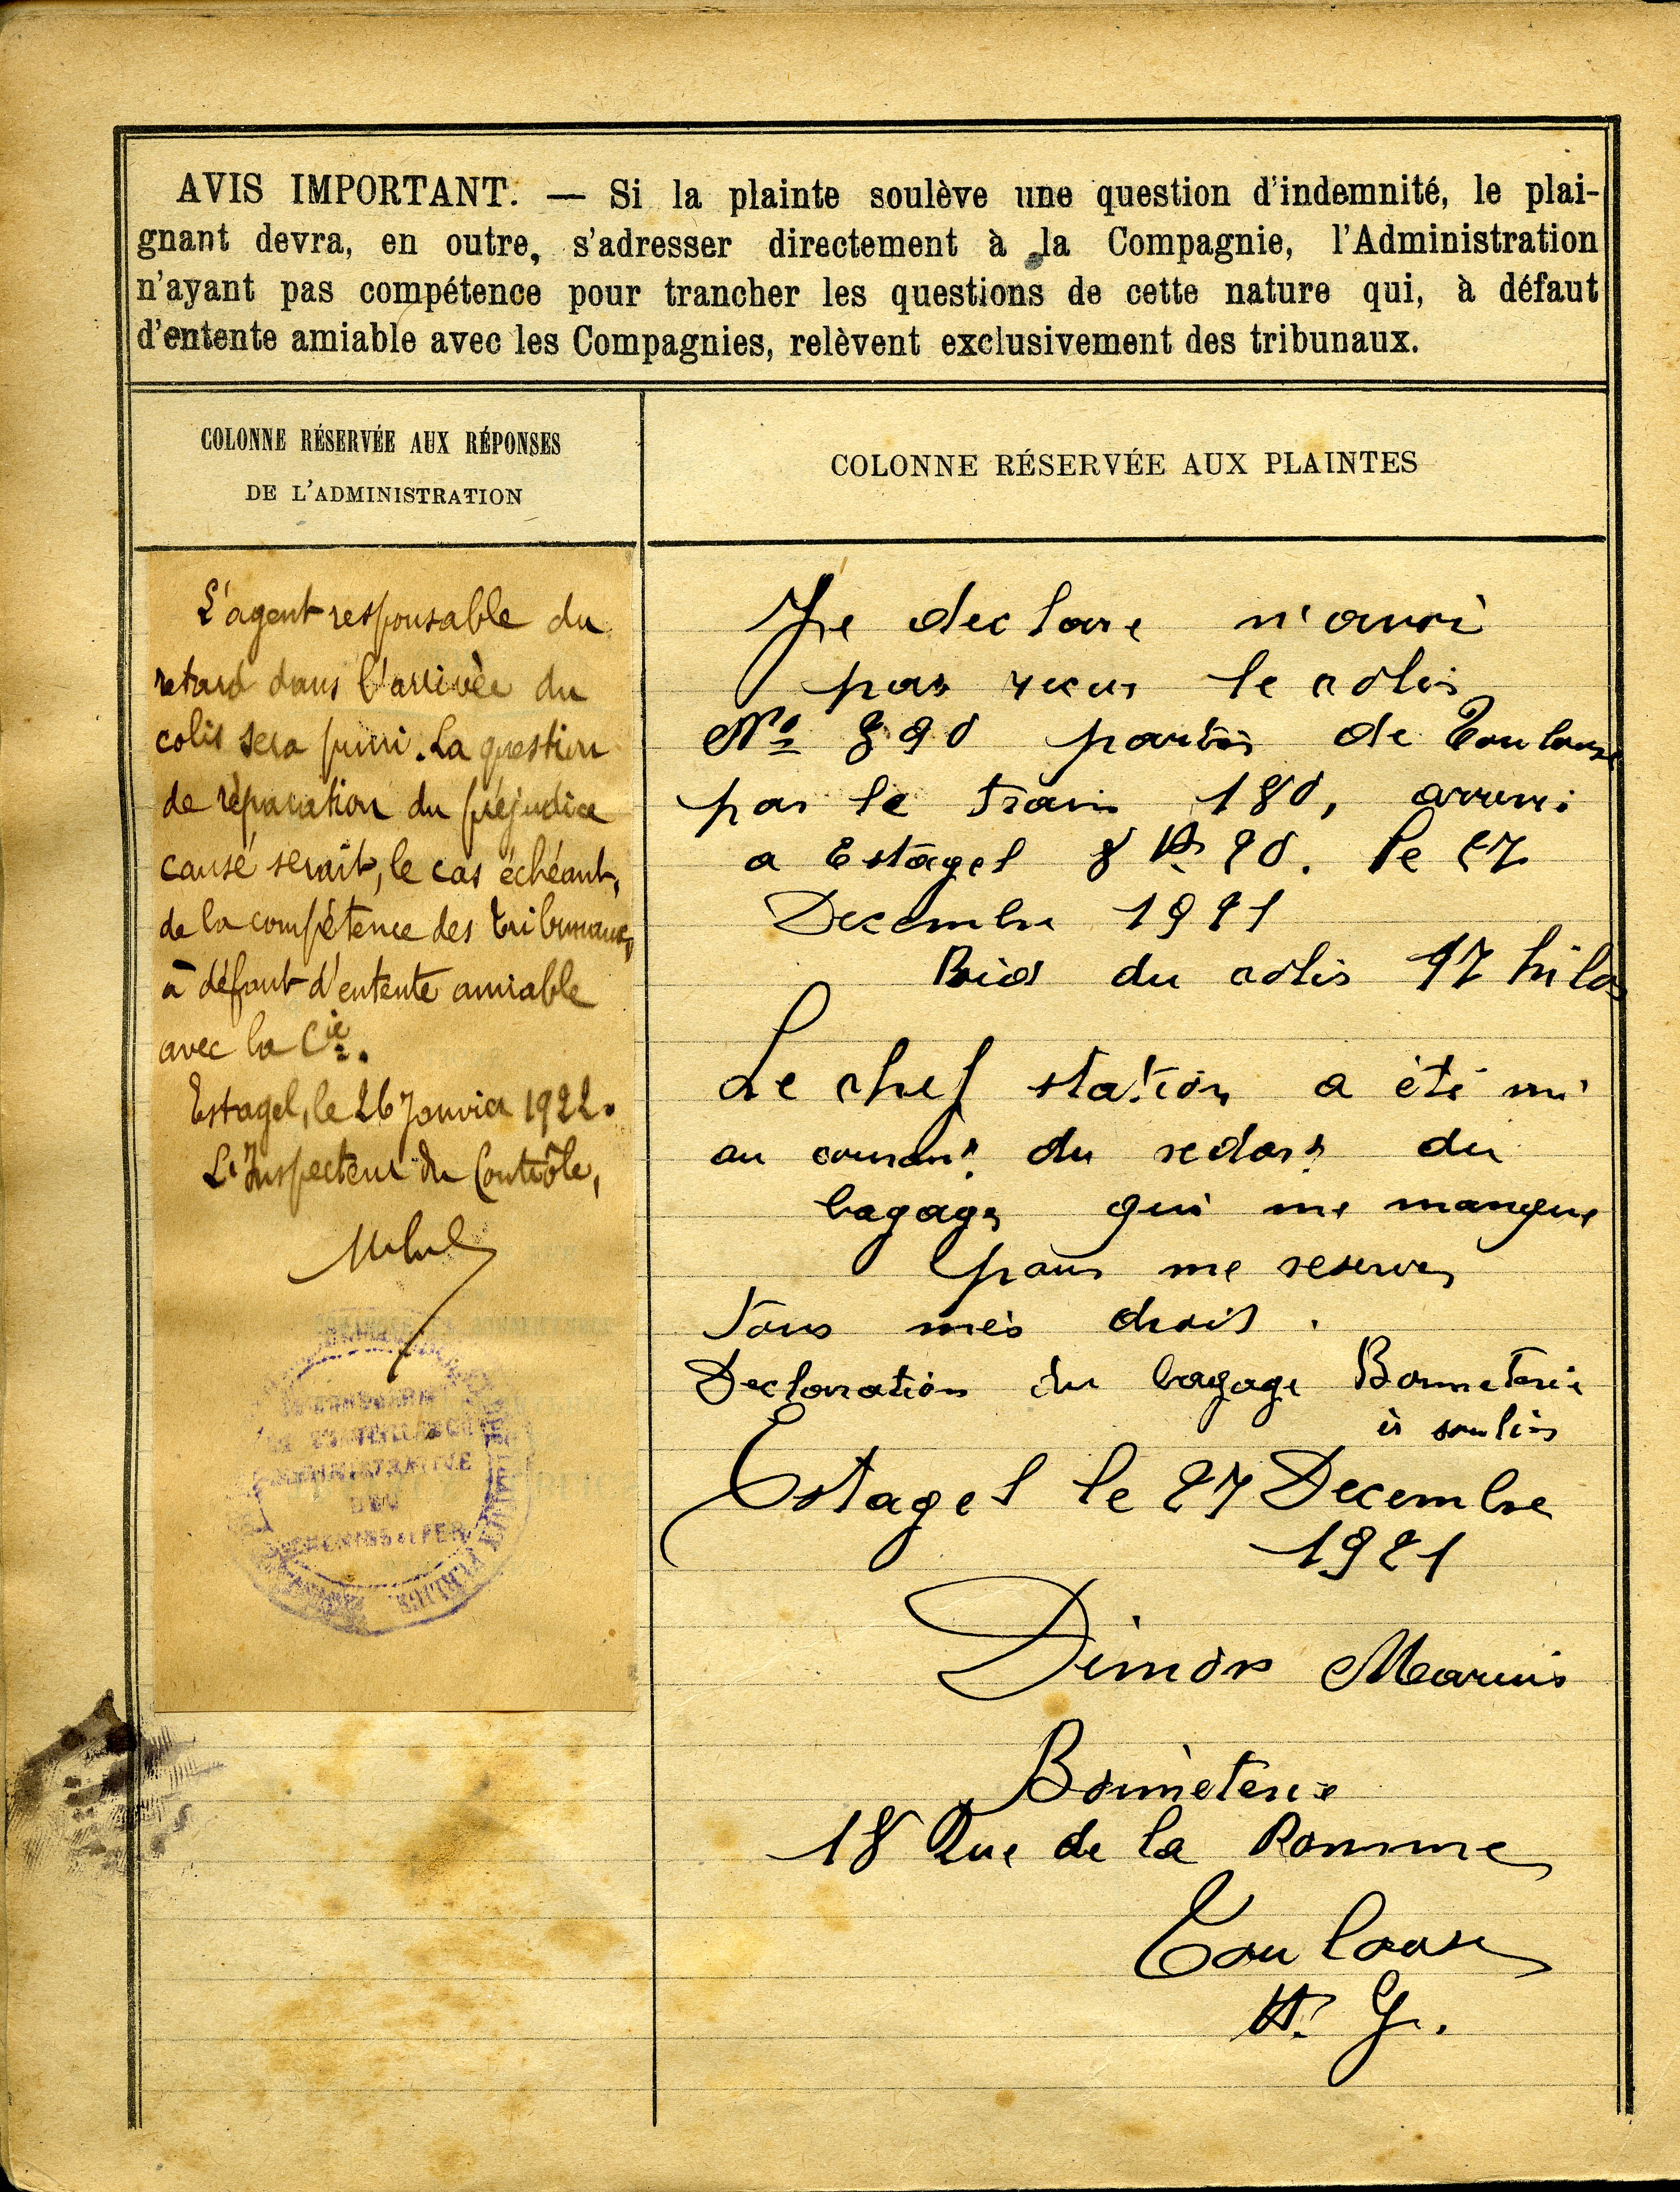 AVIS IMPORTANT. — Si la plainte soulève une question d'indemnité, le plai-
gnant devra, en outre, s'adresser directement à la Compagnie, l'Administration
n'ayant pas compétence pour trancher les questions de cette nature qui, à défaut
d'entente amiable avec les Compagnies, relèvent exclusivement des tribunaux.
COLONNE RÉSERVÉE AUX RÉPONSES
DE L'ADMINISTRATION
L'agent responsable du
retard dans l'arrivée du
colis sera puni. La question
de réparation du préjudice
causé serait, le cas échéant,
de la compétence des tribunaux,
à défaut d'entente amiable
avec la Cie.
Estagel, le 26 Janvier 1922.
L'Inspecteur du Contrôle,
ADMINISTRATIVE
DES
CHEMINS de FER
COLONNE RÉSERVÉE AUX PLAINTES
Je declare n'avoi
pas recus le colis
No 390 partis de Toulouse
par le train 180, arrivé
a Estagel 8 H 20. le 27
Decembre 1921
Poid du colis 17 kilos
Le chef station a été mi
au courant du retart du
bagage qui me manque
pour me reserver
tous mes droit.
Declaration du bagage Bonneterie
et soulier
Estagel le 27 Decembre
1921
Dimon Marius
Bonneterie
18 Rue de la Pomme
Toulouse
H. G.